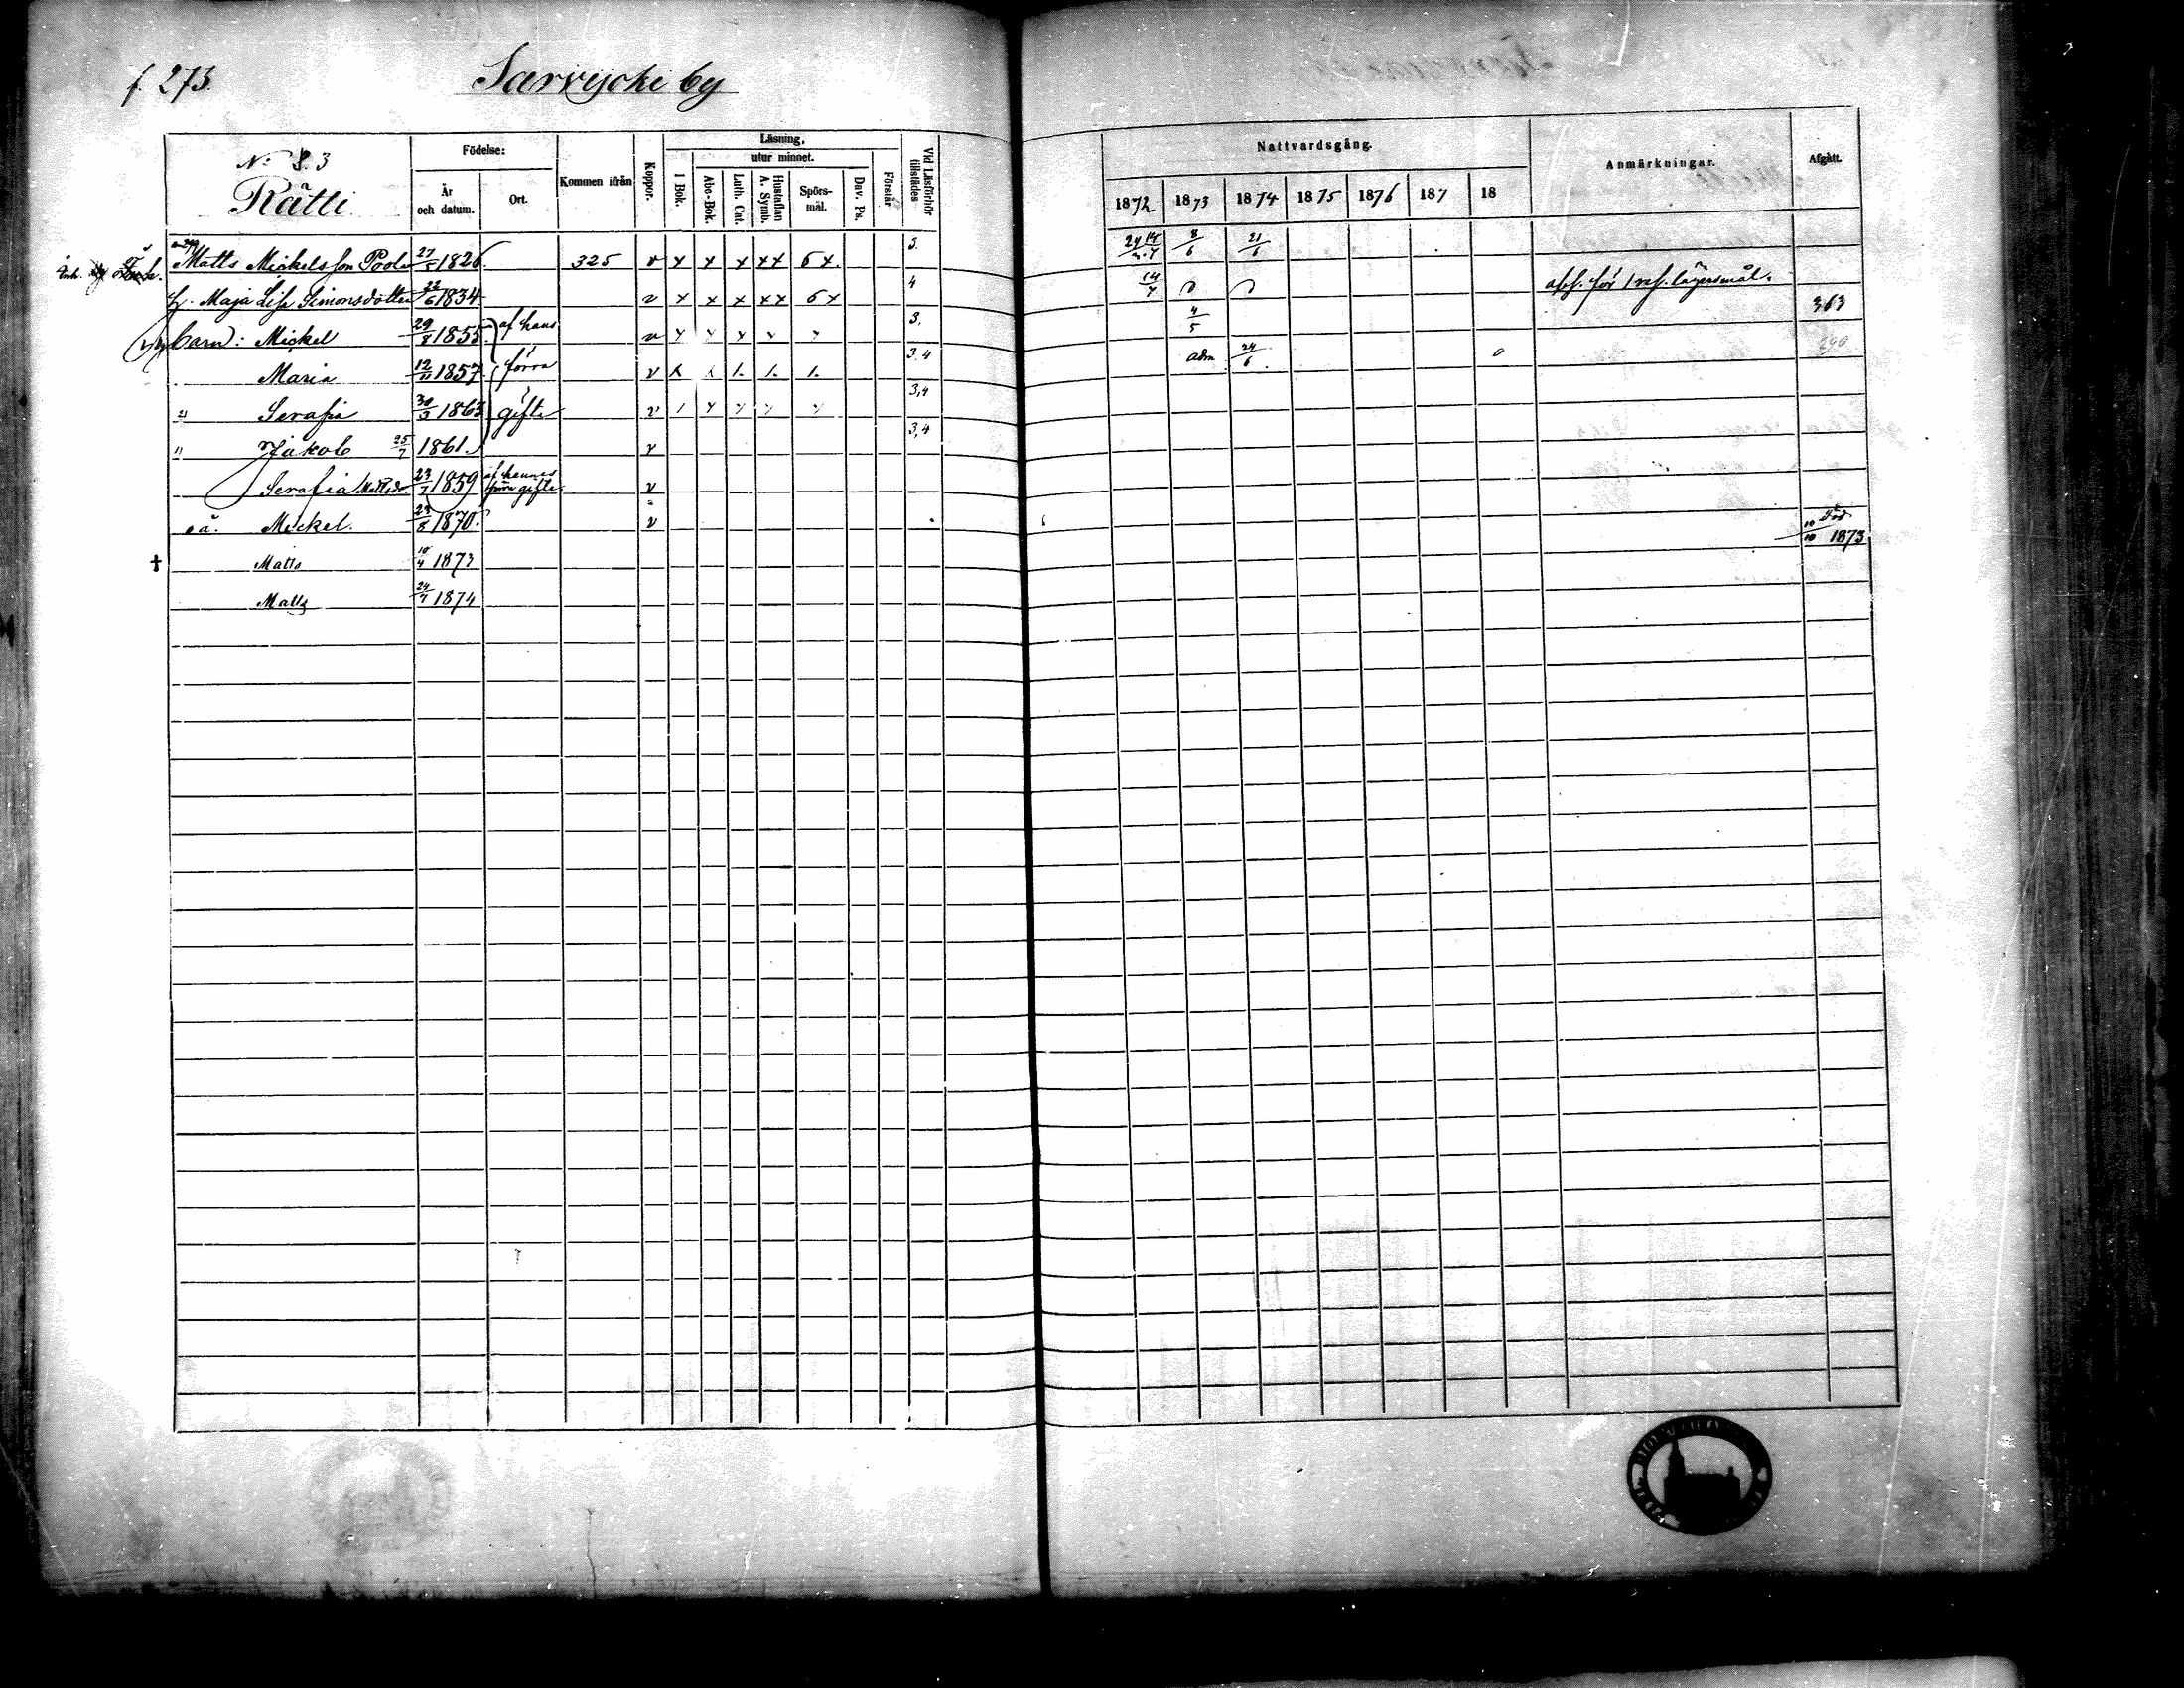 f. 273.
Sarvijoki by
No 3
Rätti
Födelse:
År och datum.
Ort.
Kommen ifrån
Koppor.
Läsning,
utur minnet.
I Bok.
Abc-Bok.
Luth. Cat.
Hustaflan A. Symb.
Spörsmål.
Dav. Ps.
Förstår
Vid Läsförhör tillstädes
Nattvardsgång.
1872 1873 1874 1875 1876 187 18
Anmärkningar.
Afgått.
Matts Mickelsson 27/5 1826 325 v x x x xx 6x 3. 8/6 21/6
h. Maja Lisa Simonsdotter 22/6 1834 v x x x xx 6x 4 14/7 afs. för 1 res. lägersmål.
barn: Mickel 29/8 1855 af hans v 3. 4/5 363
Maria 12/11 1857 förra v 3,4 adm 24/6
" Serafia 30/3 1863 gifte v 3,4
" Jakob 25/7 1861. v 3,4
Serafia Mattsdr. 23/7 1859 af hennes förra gifte v
oä. Mickel. 23/8 1870. v
† Matts 10/4 1873 död 10/10 1873
Matts 24/7 1874